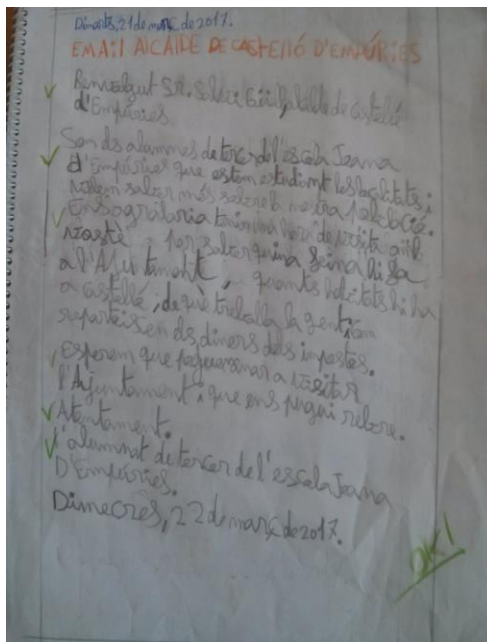 Dimarts, 21 de març de 2017.
EMAIL ALCALDE DE CASTELLÓ D'EMPÚRIES
Benvolgut Sr. Salvi Güell, alcalde de Castelló
d'Empúries.
Som els alumnes de tercer de l'escola Joana
d'Empúries que estem estudiant les localitats i
volem saber més sobre la nostra població.
Ens agradaria tenir una hora de visita amb
vostè, per saber quina feina hi fa
a l'Ajuntament, quants habitats hi ha
a Castelló, de què treballa la gent i com
reparteixen els diners dels impostos.
Esperem que poguem anar a visitar
l'Ajuntament i que ens pugui rebre.
Atentament.
L'alumnat de tercer de l'escola Joana
D'Empúries.
Dimecres, 22 de març de 2017.
OK!